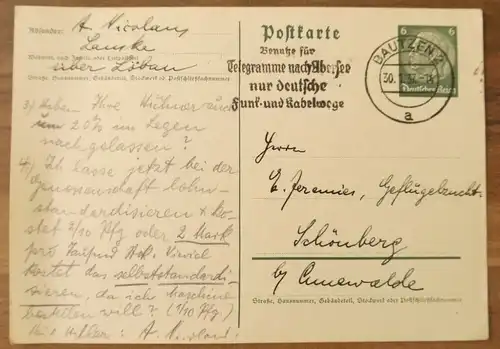 Absender: A. Nicolaus
Lauske
Wohnort, auch Zustell- oder Leitpostamt
über Löbau
Straße, Hausnummer, Gebäudeteil, Stockwerk od. Postschließfachnummer
3) Haben Ihre Hühner auch
um 20% im Legen
nachgelassen?
4) Ich lasse jetzt bei der
Genossenschaft lohn-
standardisieren +
kostet 2/10 Pfg oder 2 Mark
pro Tausend Stck. Wieviel
kostet das selbststandardi-
sieren, da ich Maschine
bestellen will? (1/10 Pfg)
A. Nicolaus
Postkarte
Benutze für
Telegramme nach Übersee
nur deutsche
Funk- und Kabelwege
BAUTZEN 2
30.
a
6 6
Deutsches Reich
Herrn
E. Jeremies, Geflügelzucht
Schönberg
by Cunewalde
Straße, Hausnummer, Gebäudeteil, Stockwerk oder Postschließfachnummer